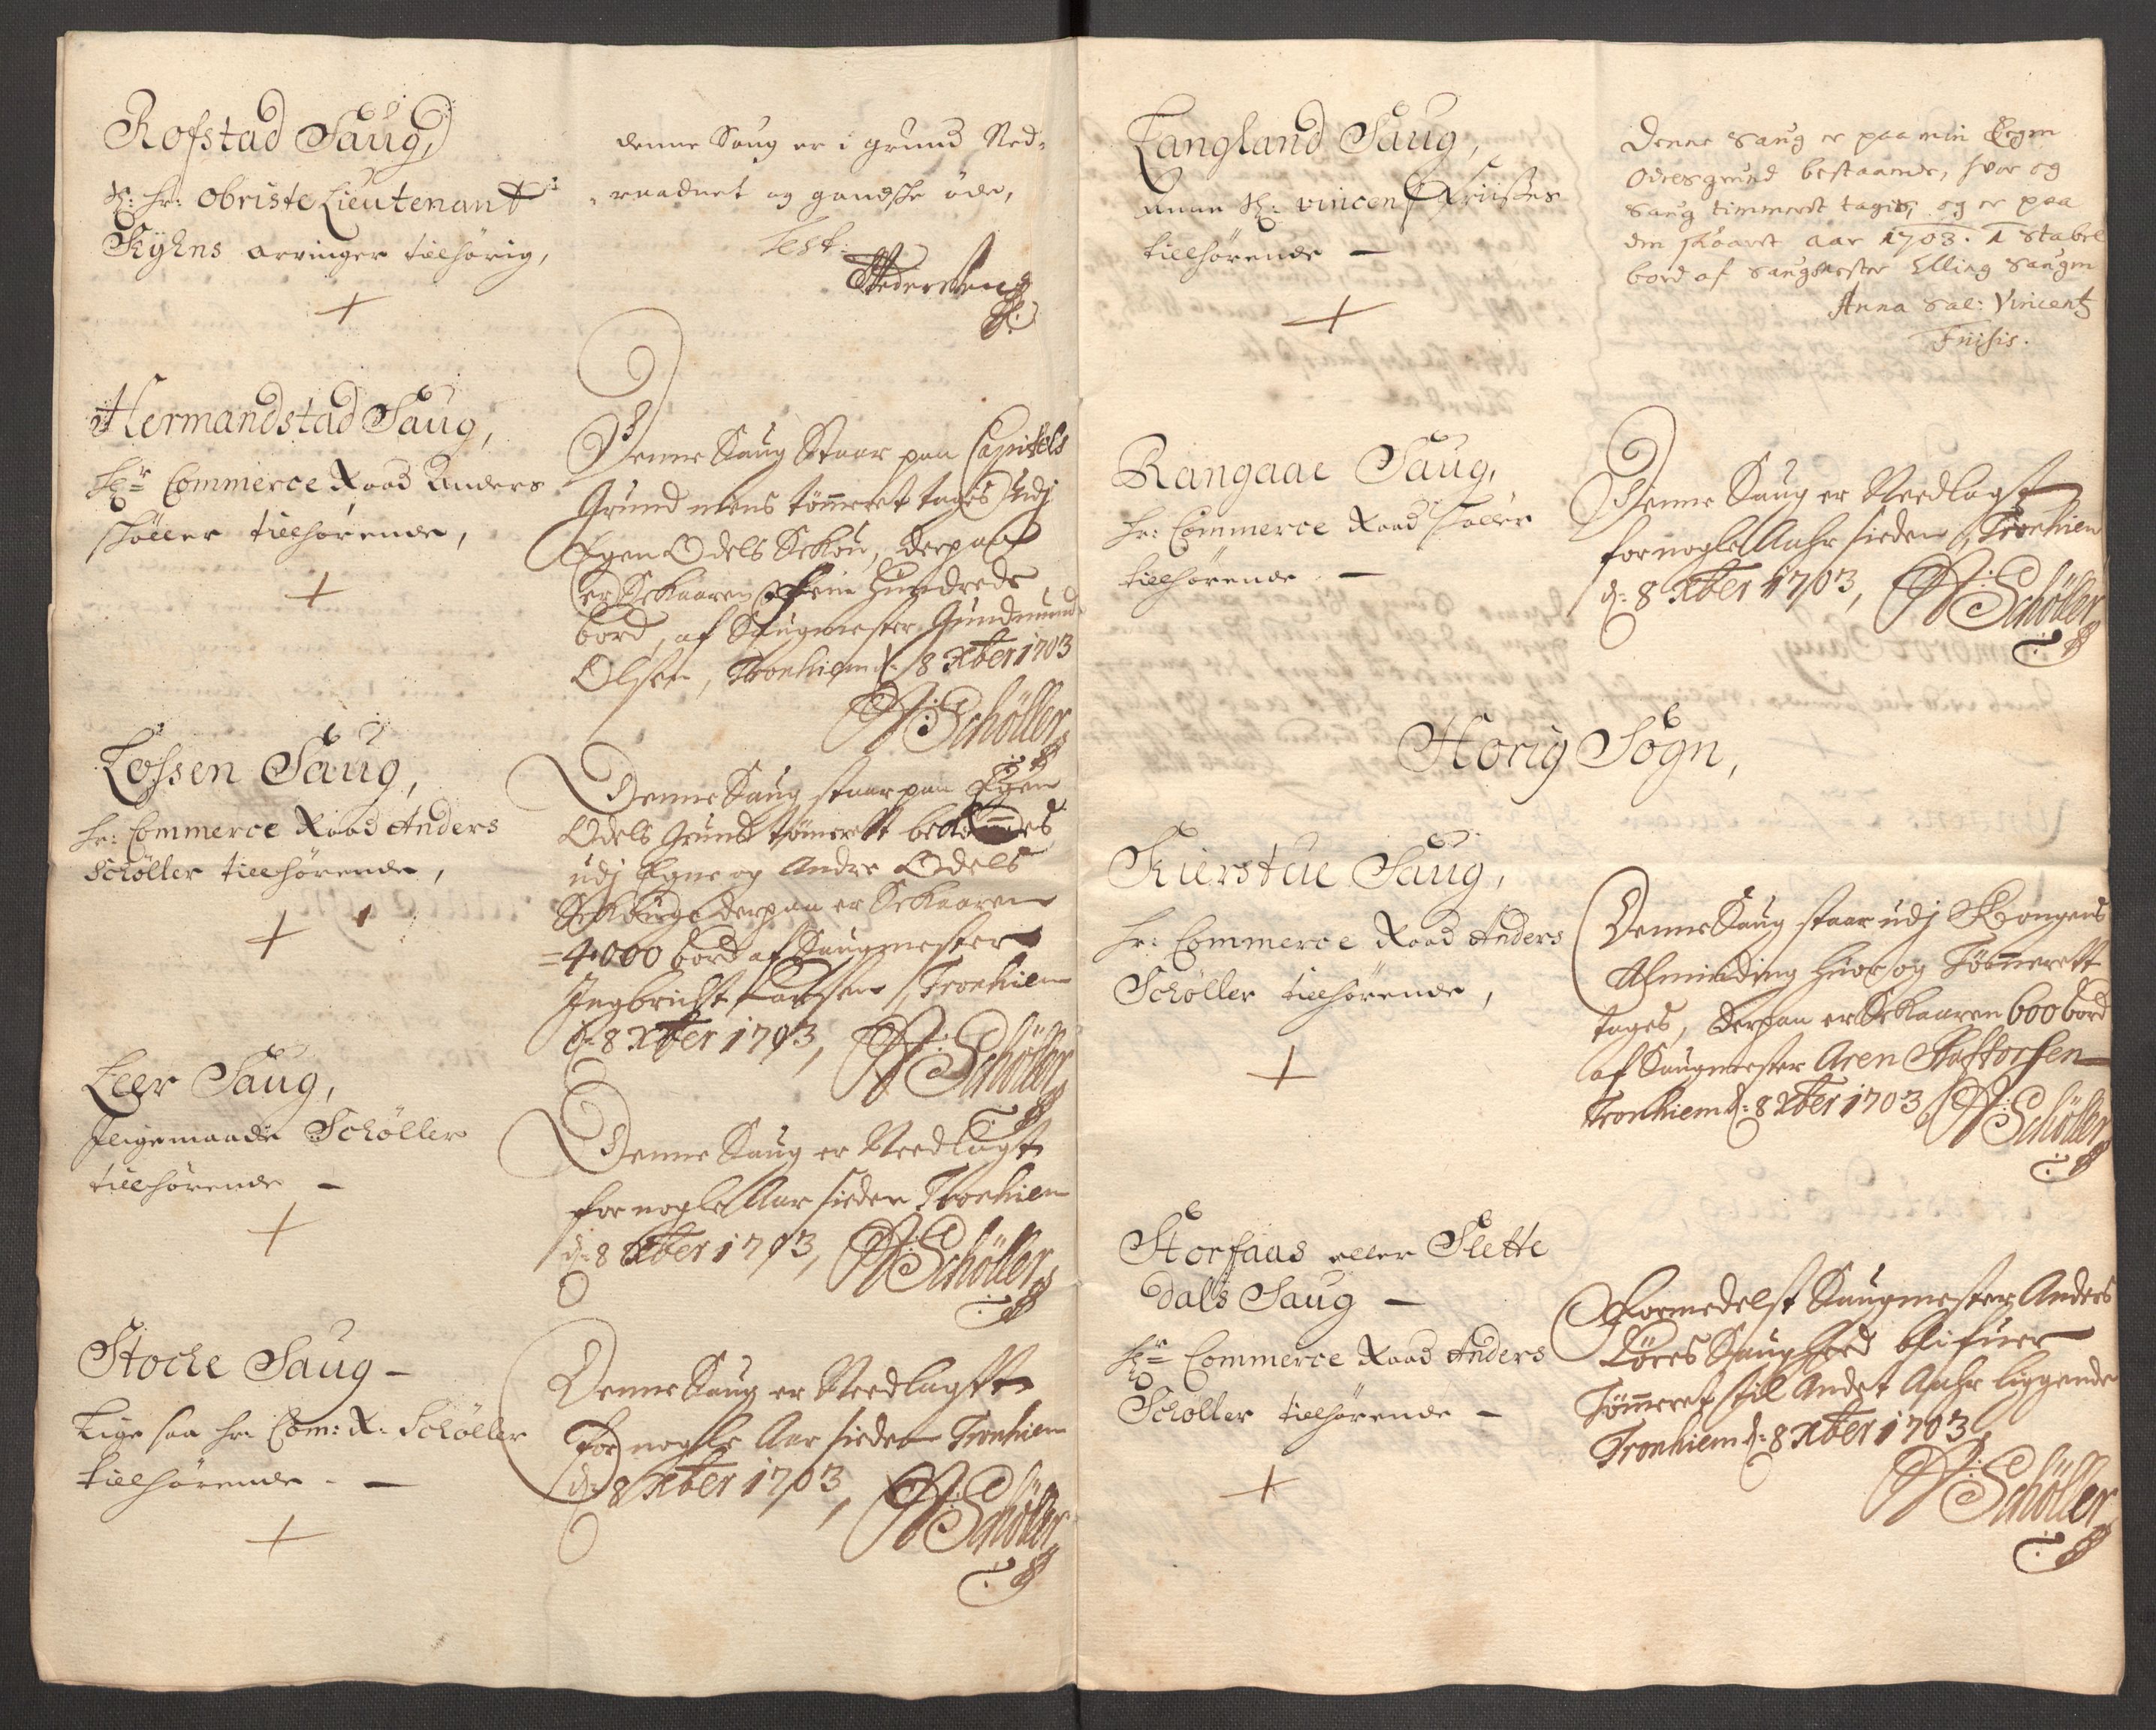 Rofstad Saug,
Sl: Hr: Obriste Lieutenant
Kyhns arvinger tilhørig,
denne Saug er i grund Ned-
raadnet og gandske øde,
Test:
Pedersen
Hermandstad Saug,
Hr Commerce Raad Anders
skøller tilhørende,
Denne Saug Staar paa Capitels
Grund mens tømeret tages udj
Egen Odels Skou, derpaa
er Skaaren fem Hundrede
bord, af Saugmester Gundmund
Olsen, Tronhiem d: 8 Xber 1703
A: Schøller
Lossen Saug,
Hr: Commerce Raad Anders
Schøller tilhørende,
Denne Saug staar paa Egen
Odels Grund tømerett
udj Egne og Andre Odels
Skouge derpaa er Skaaren
4000 bord af Saugmester
Ingbricht Larsen, Tronhiem
d: 8 Xber 1703,
A: Schøller
Leer Saug,
Iligemaade Schøller
tilhørende –
Denne Saug er Needlagt
for nogle Aar siden Tronhiem
d: 8 Xber 1703,
A: Schøller
Stocke Saug –
Lige saa Hr: Com: R: Schøller
tilhørende –
Denne Saug er Needlagt
for nogle Aar siden Tronhiem
d: 8 Xber 1703,
A: Schøller
Langland Saug,
Anne Sl: Vincentz Friisses
tillhørende –
Denne saug er paa min Egen
Odelsgrund bestaaende, hvor og
saug timmerdt tagis, og er paa
den skaaret aar 1703. 1 stabel
bord af saugmester Elling Saugm
Anna Sal: Vincentz
Friisis.
Rangaae Saug,
Hr: Commerce Raad skøller
tillhørende –
Denne Saug er Needlagt
for nogle Aahr siden, Tronhiem
d: 8 Xber 1703,
A: Schøller
Horig Sogn,
Kierstue Saug,
Hr: Commerce Raad Anders
Schøller tilhørende,
Denne Saug staar udj Kongens
Alminding huor og Tømmerett
tages, derpaa er Skaaren 600 bord
af Saugmester Aren
Tronhiem d: 8 Xber 1703
A: Schøller
Storfaas eller Slette
dals Saug –
Hr Commerce Raad Anders
Schøller tilhørende –
Formedelst Saugmester Anders
blifuer
Tømmeret till Andet Aahr liggende
Tronhiem d: 8 Xber 1703
A: Schøller